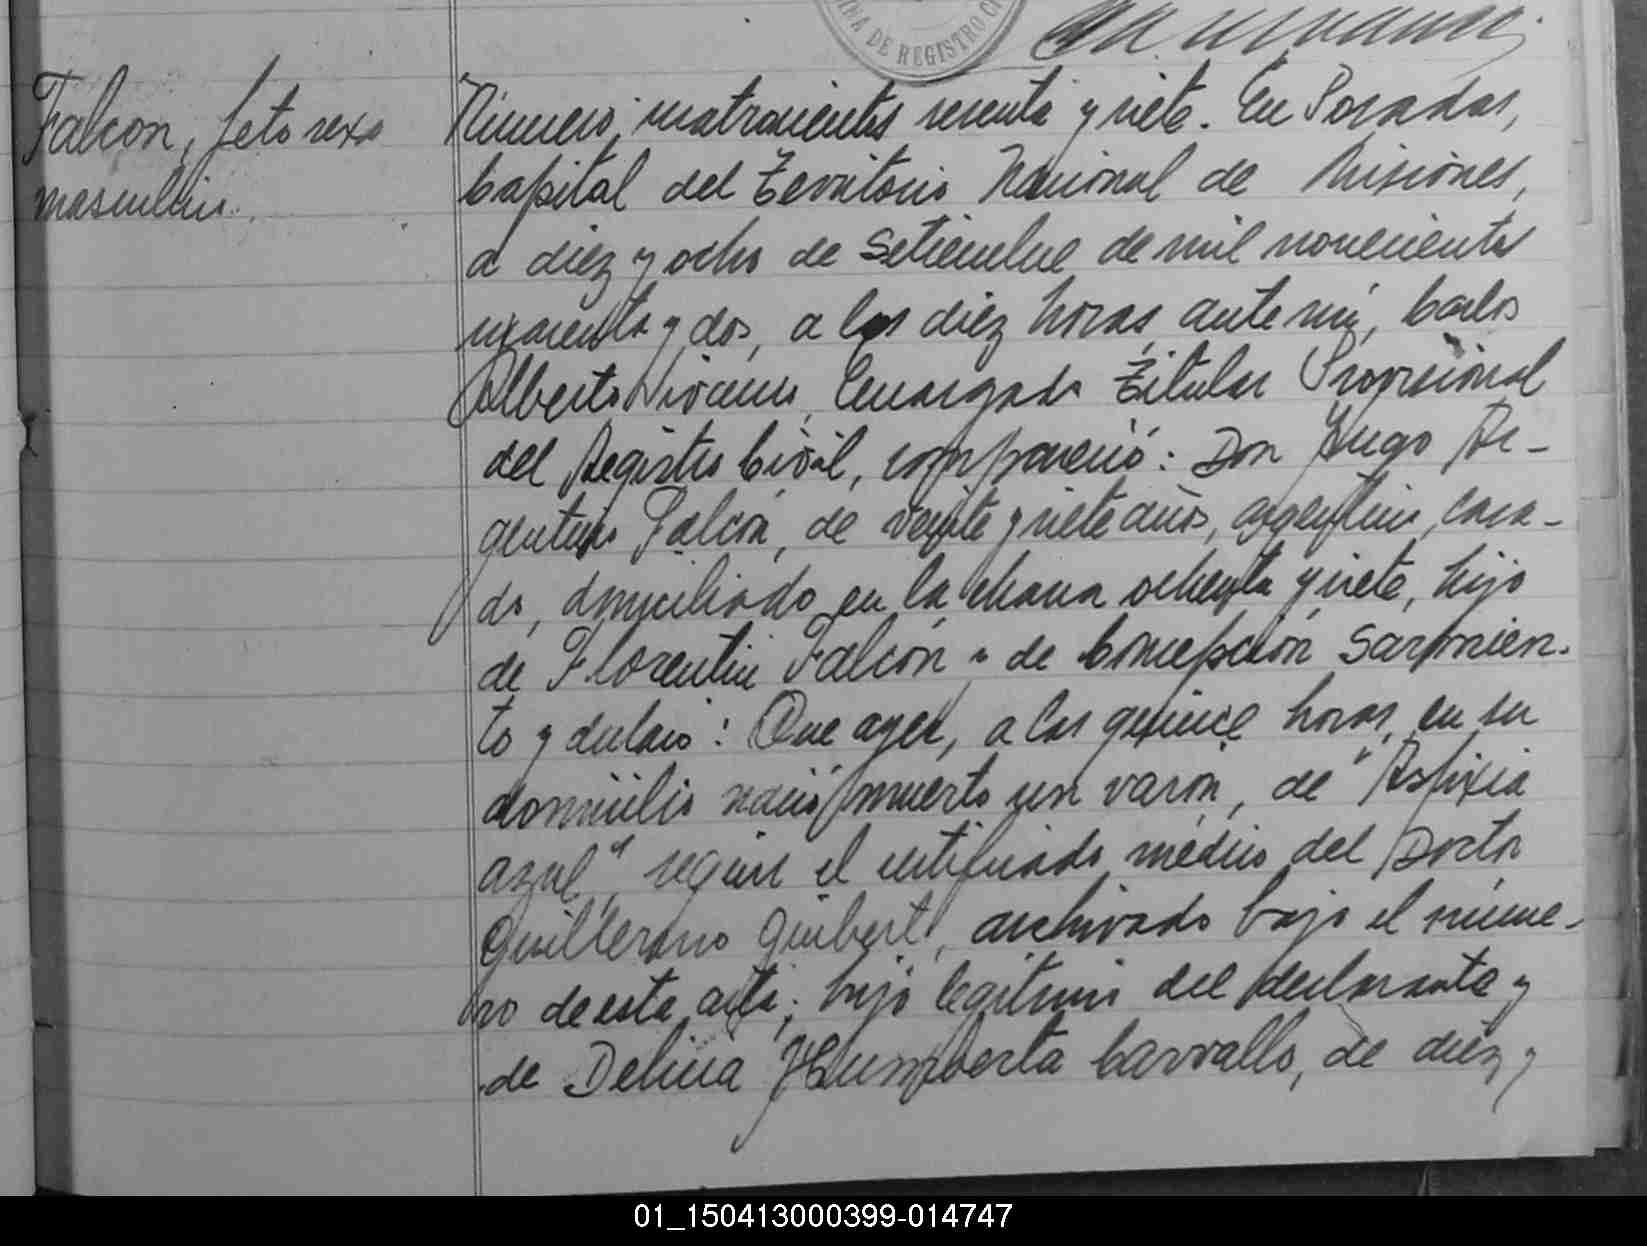 DE REGISTRO CI
Falcon, feto sexo
masculino.
Número, cuatrocientos sesenta y siete. En Posadas,
Capital del Territorio Nacional de Misiones,
a diez y ocho de Setiembre de mil novecientos
cuarenta y dos, a las diez horas, ante mí, Carlos
Alberto Encargado Titular Provisional
del Registro Civil, compareció: Don Hugo Ar-
gentino Falcón, de veinte y siete años, argentino, casa-
do, domiciliado en la chacra ochenta y siete, hijo
de Florentin Falcón y de Concepción Sarmien-
to y declaró: Que ayer, a las quince horas, en su
domicilio nació muerto un varón, de "Asfixia
azul", según el certificado médico del Doctor
Guillermo Guibert, archivado bajo el núme-
ro de esta acta; hijo legítimo del declarante y
de Delicia Humberta Carvallo, de diez y
01_150413000399-014747